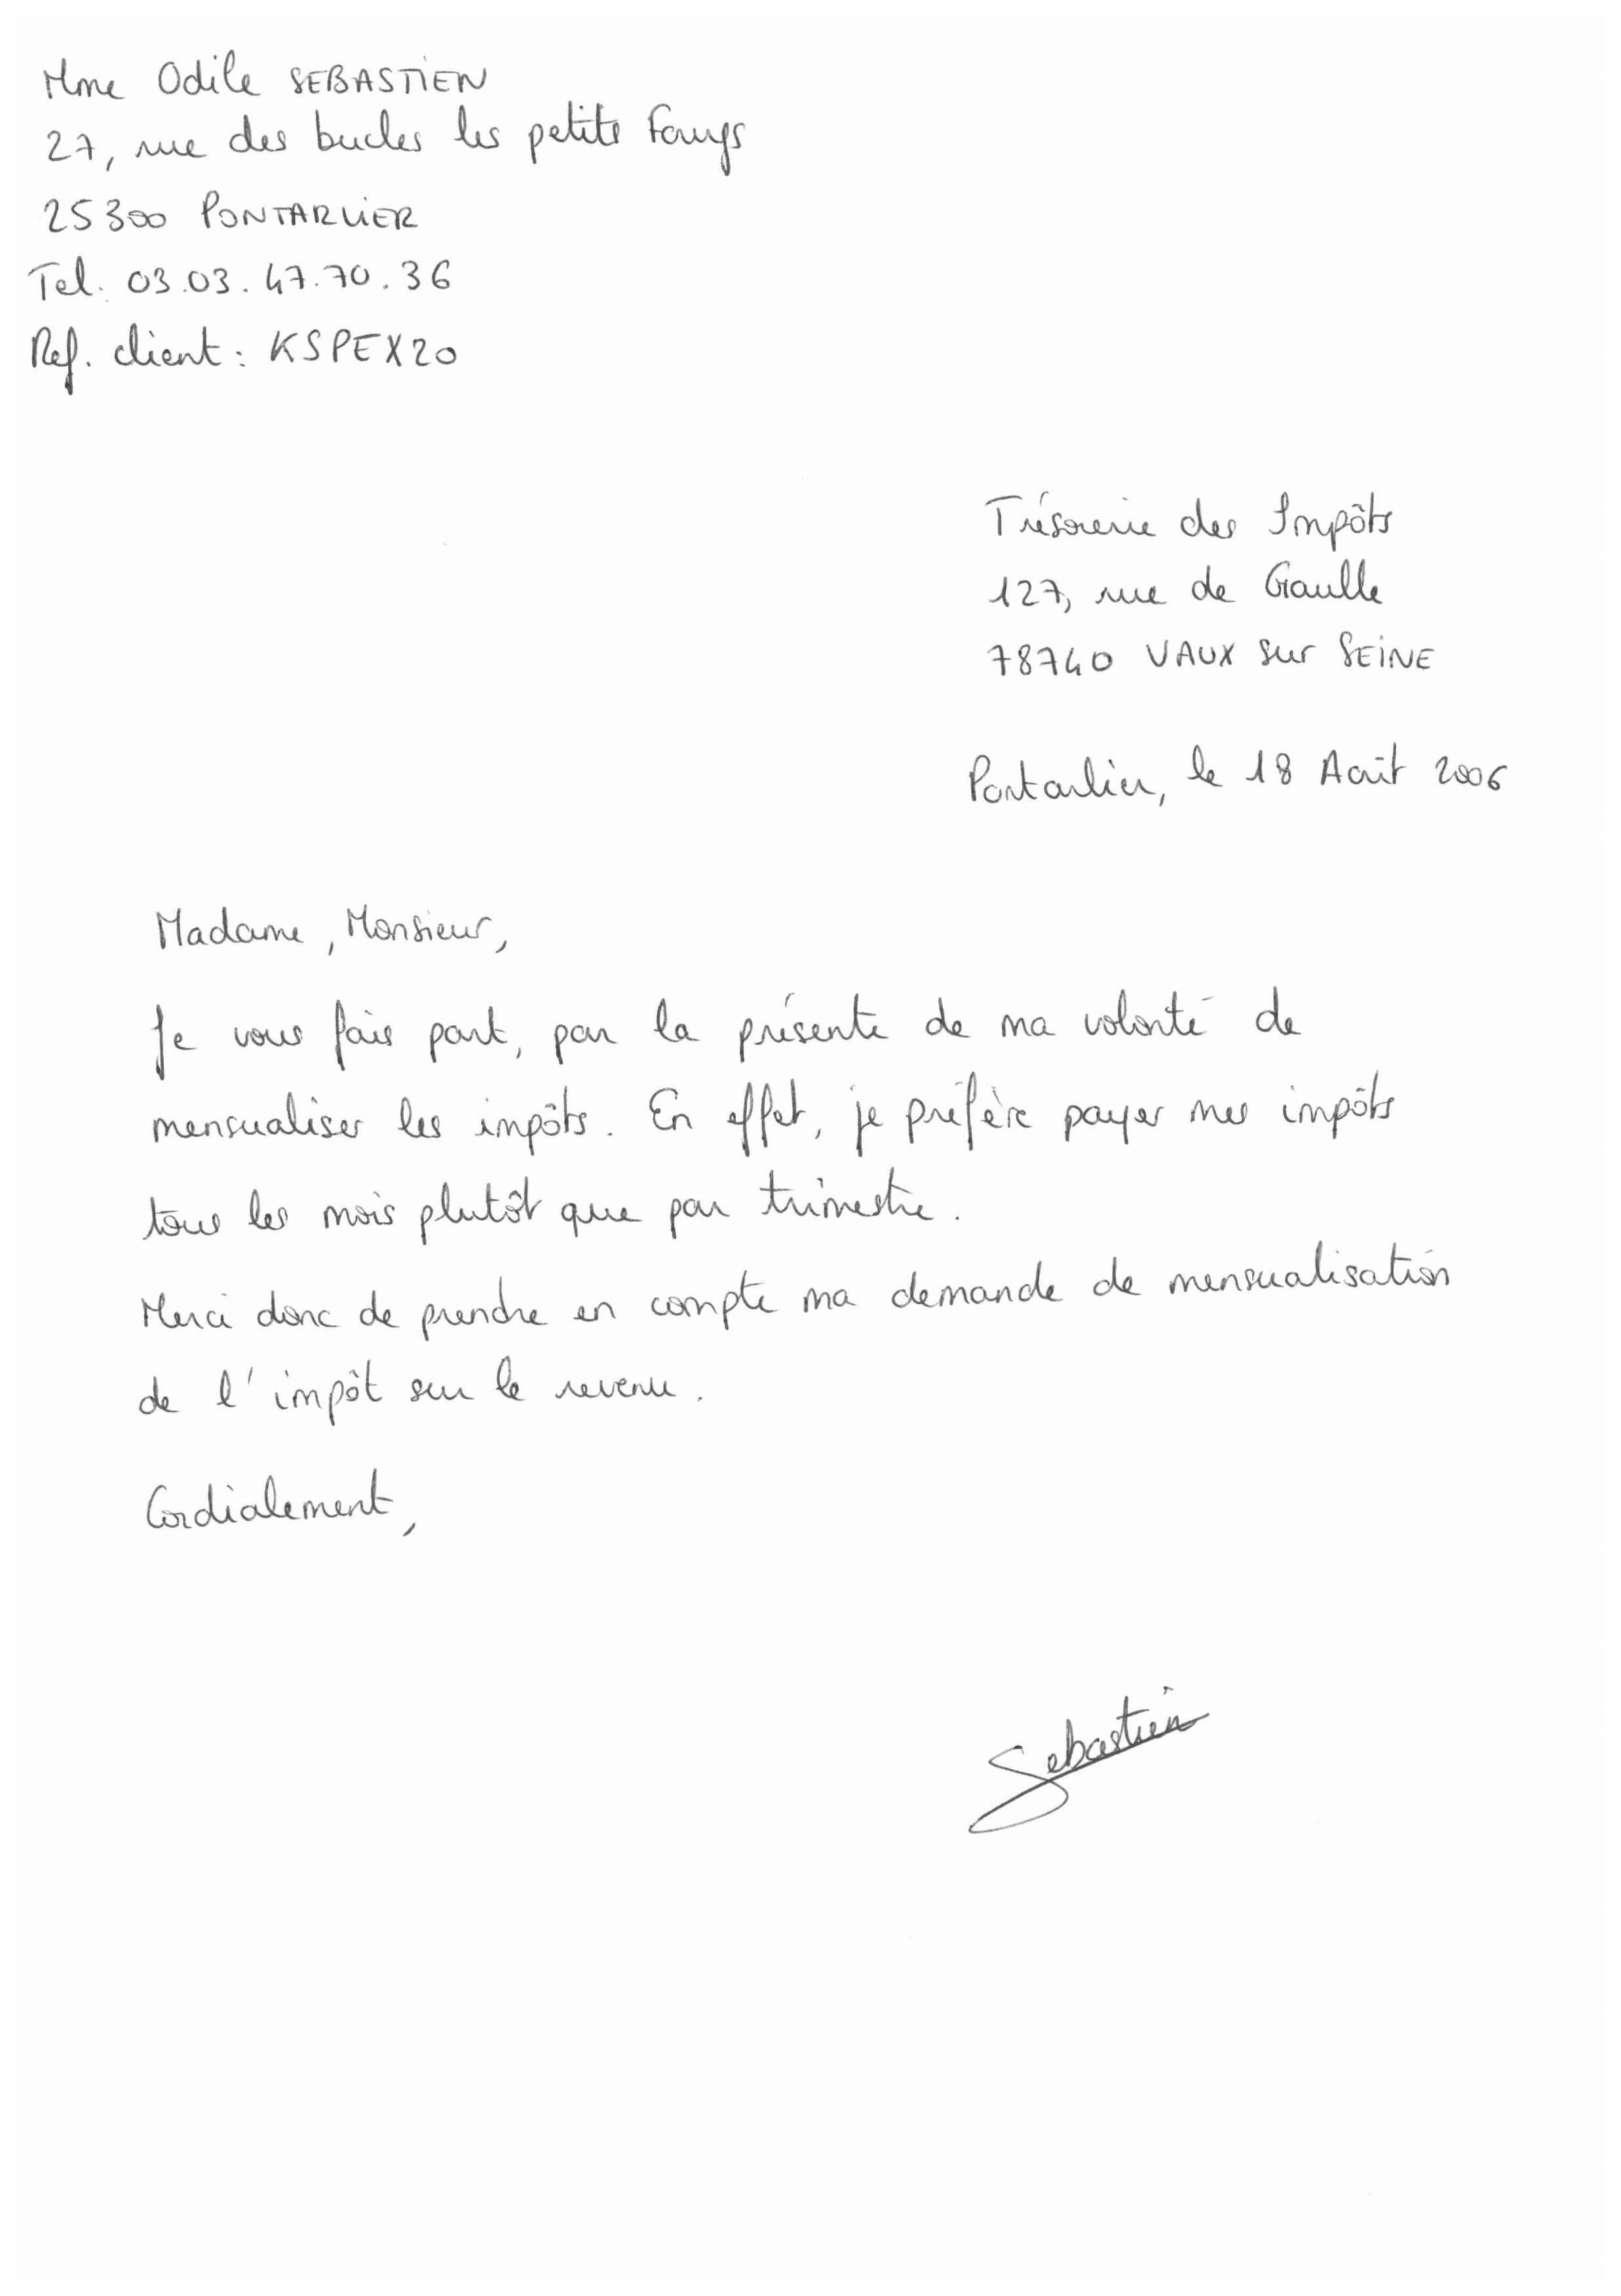 Mme Odile SEBASTIEN
27, rue des bucles les petits Fougs
25300 PONTARLIER
Tel. 03.03.47.70.36
Ref. client : KSPEX20
Trésorerie des Impôts
127, rue de Gaulle
78740 VAUX sur SEINE
Pontarlier, le 18 Août 2006
Madame, Monsieur,
Je vous fais part, par la présente de ma volonté de
mensualiser les impôts. En effet, je préfère payer mes impôts
tous les mois plutôt que par trimestre.
Merci donc de prendre en compte ma demande de mensualisation
de l'impôt sur le revenu.
Cordialement,
Sebastien